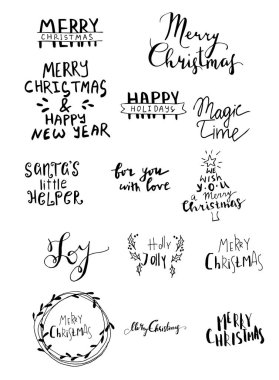 MERRY
CHRISTMAS
Merry
Christmas
MERRY
CHRISTMAS
&
HAPPY
NEW YEAR
HAPPY
HOLIDAYS
Magic
Time
SANTA'S
little
HELPER
for you
with love
we
wish
y.o.u
a merry
Christmas
Joy
Holly
Jolly
MERRY
CHRISTMAS
MERRY
CHRISTMAS
Merry Christmas
MERRY
CHRISTMAS